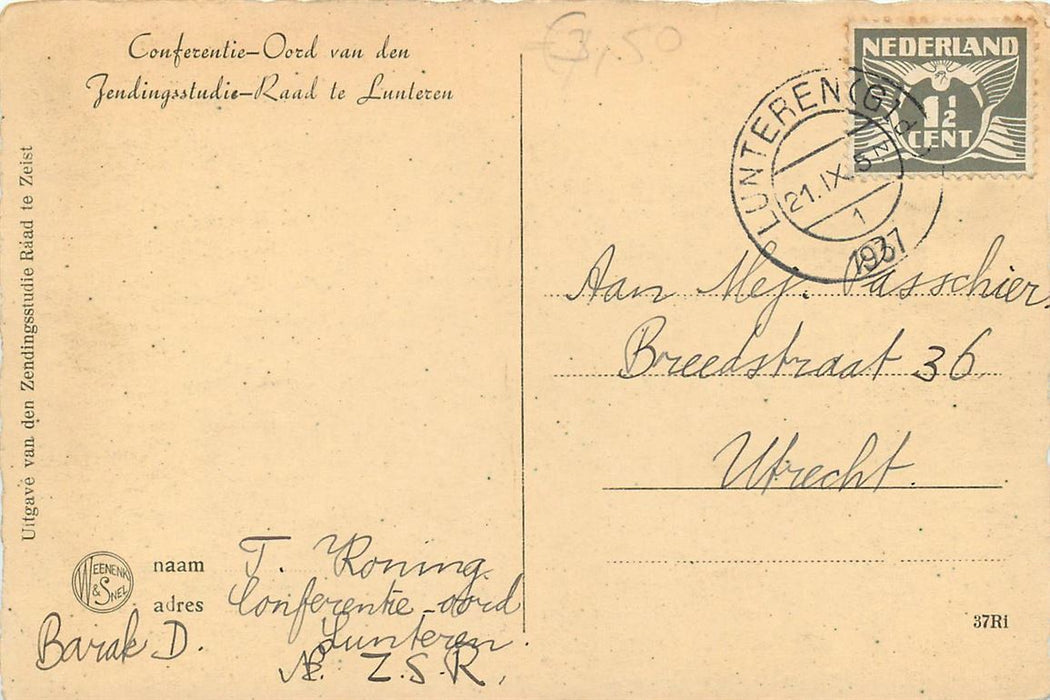 Conferentie-Oord van den
Zendingsstudie-Raad te Lunteren
€3,50
NEDERLAND
1½
CENT
LUNTEREN (Gld.)
21.IX. 5N
1
1937
Uitgave van den Zendingsstudie Raad te Zeist
Aan Mej. Passchier
Breedstraat 36
Utrecht.
WEENENK
& SNEL
naam T. Koning.
adres Conferentie-oord
Lunteren.
Barak D.
Z.S.R,
37Ri